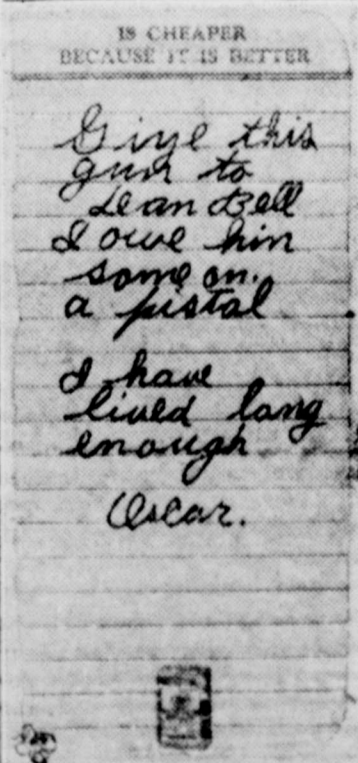 IS CHEAPER
BECAUSE IT IS BETTER
Give this
gun to
Dean Bell
I owe him
some on.
a pistal
I have
lived lang
enough
Oscar.